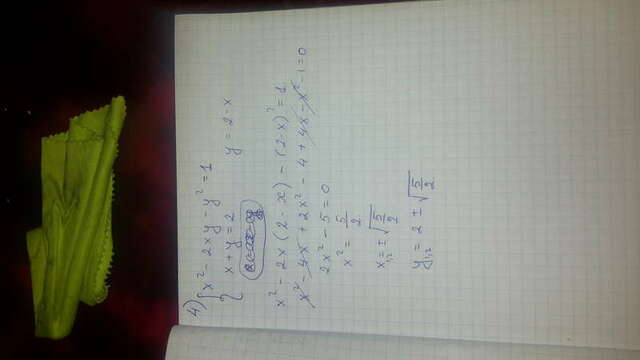 4) { x² - 2xy - y² = 1
x + y = 2 y = 2-x
x² - 2x(2-x) - (2-x)² = 1
x² - 4x + 2x² - 4 + 4x - x² - 1 = 0
2x² - 5 = 0
x² = 5/2
x₁,₂ = ± √5/2
y₁,₂ = 2 ± √5/2